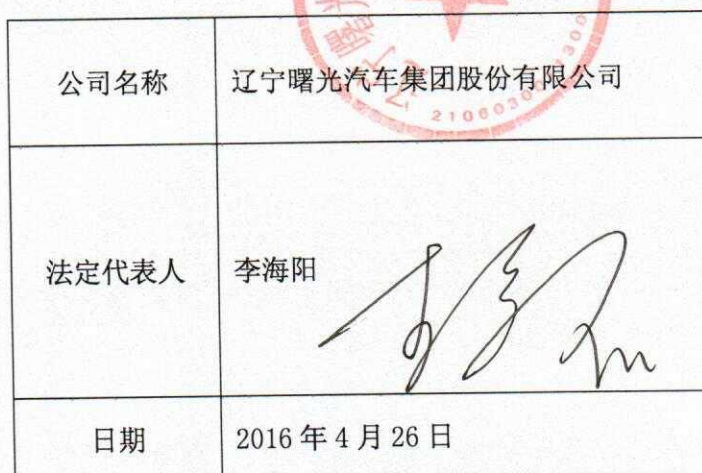 公司名称
辽宁曙光汽车集团股份有限公司
法定代表人
李海阳
日期
2016年4月26日